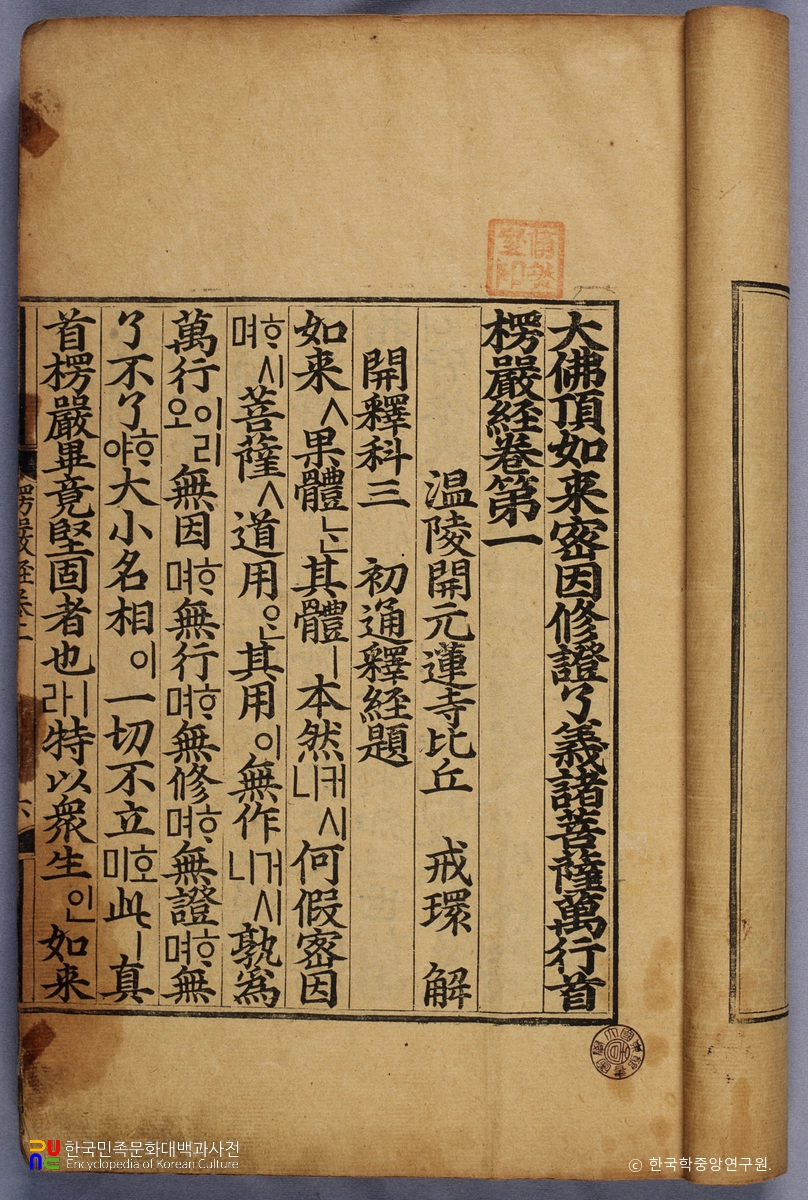 大佛頂如来密因修證了義諸菩薩萬行首
楞嚴経卷第一
温陵開元蓮寺比丘 戒環 解
開釋科三 初通釋経題
如来ㅅ果體ᄂᆞᆫ其體ㅣ本然커시니何假密因
ᄒᆞ시며菩薩ㅅ道用ᄋᆞᆫ其用이無作거시니孰爲
萬行이리오無因ᄒᆞ며無行ᄒᆞ며無修ᄒᆞ며無證ᄒᆞ며無
了不了ᄒᆞ야大小名相이一切不立호미此ㅣ真
首楞嚴畢竟堅固者也ㅣ라特以衆生인如来
한국민족문화대백과사전
Encyclopedia of Korean Culture
© 한국학중앙연구원.